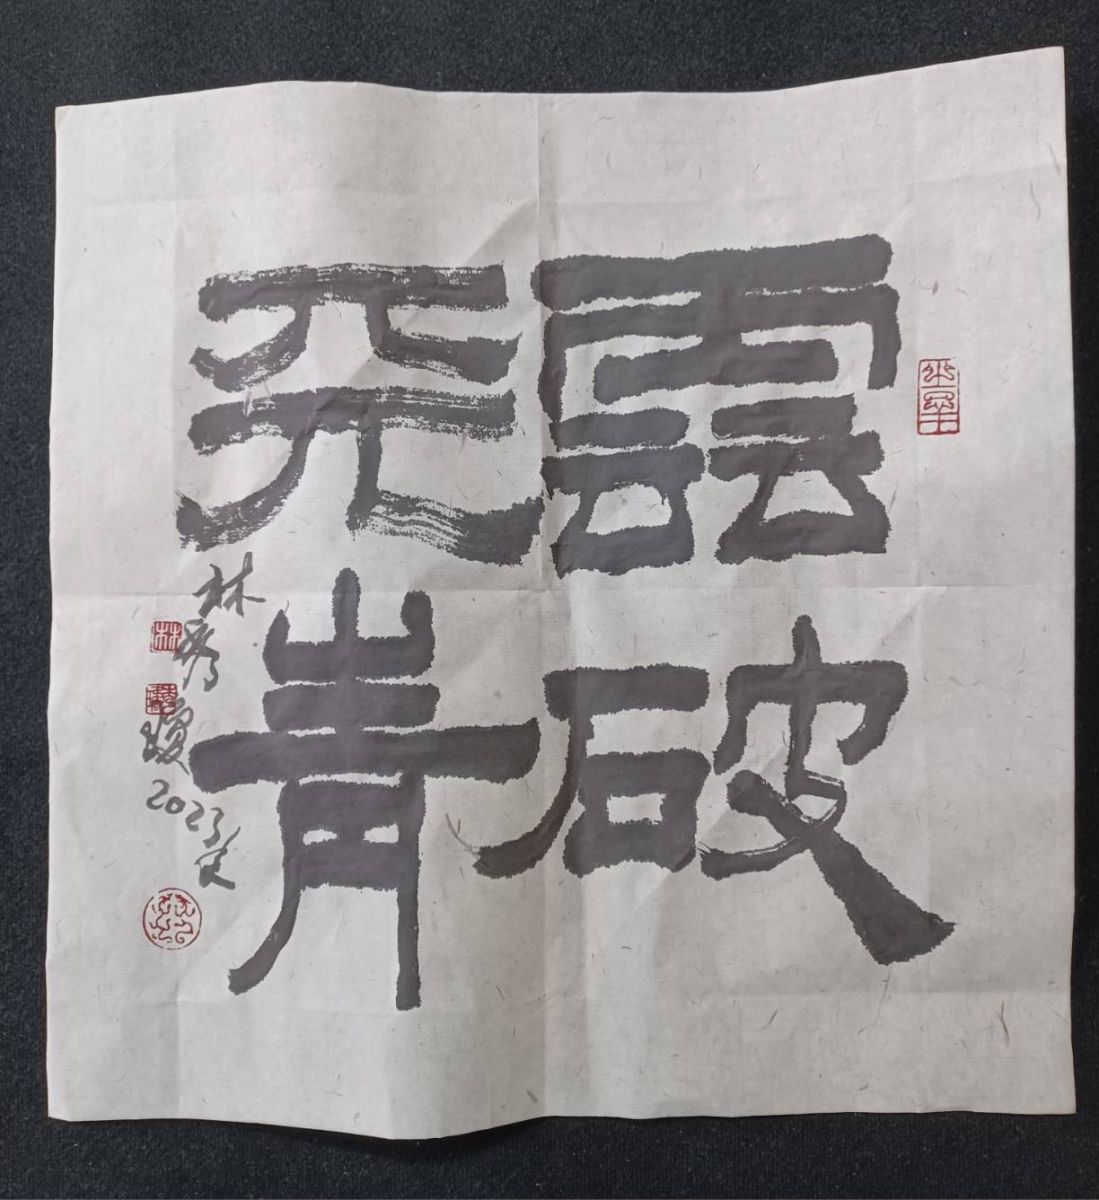 雲破
天青
林秀瓊2023
林